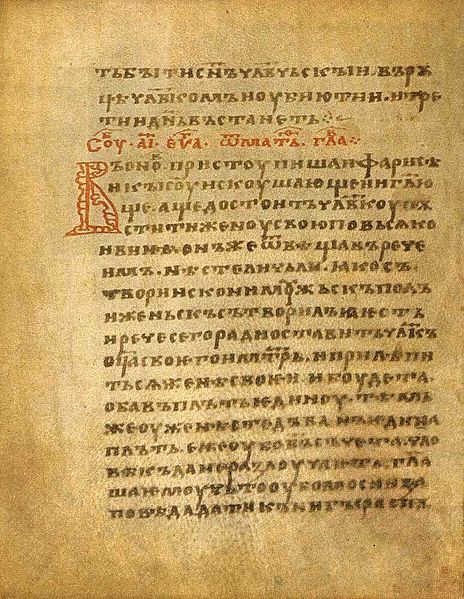 тъ бꙑти сн҃ѹ чл҃вчьскꙑи. въ рѹ
цѣ чл҃вкомъ. и ѹбиють и. и тре
тии дн҃ь въстанеть ·:·
Соу. аı. еѵа. ѿ мат. гла ·:·
Въ оно. пристоупиша фарисѣ
и къ іс҃оу искоушающеи и гл҃ю
ще. аще достоить чл҃вкоу поу
стити женоу свою по вьсѧко
и винѣ. онъ же ѿвѣщавъ рече
имъ. нѣсте ли чьли. ꙗко съ
твории искони моужьскъ полъ
и женьскъ сътворилъ ꙗ есть
и рече сего ради оставить чл҃вкъ
оц҃а своего и матерь. и прилѣпи
тьсѧ женѣ своеи. и боудета
оба въ плъть единоу. тѣмь
же оуже нѣста дъва нъ едина
плъть. еже оубо бъ съчета. чло
вѣкъ да не разлоучаеть. гла
ша емоу чьто оубо моси за
повѣда дати кънигꙑ распоу